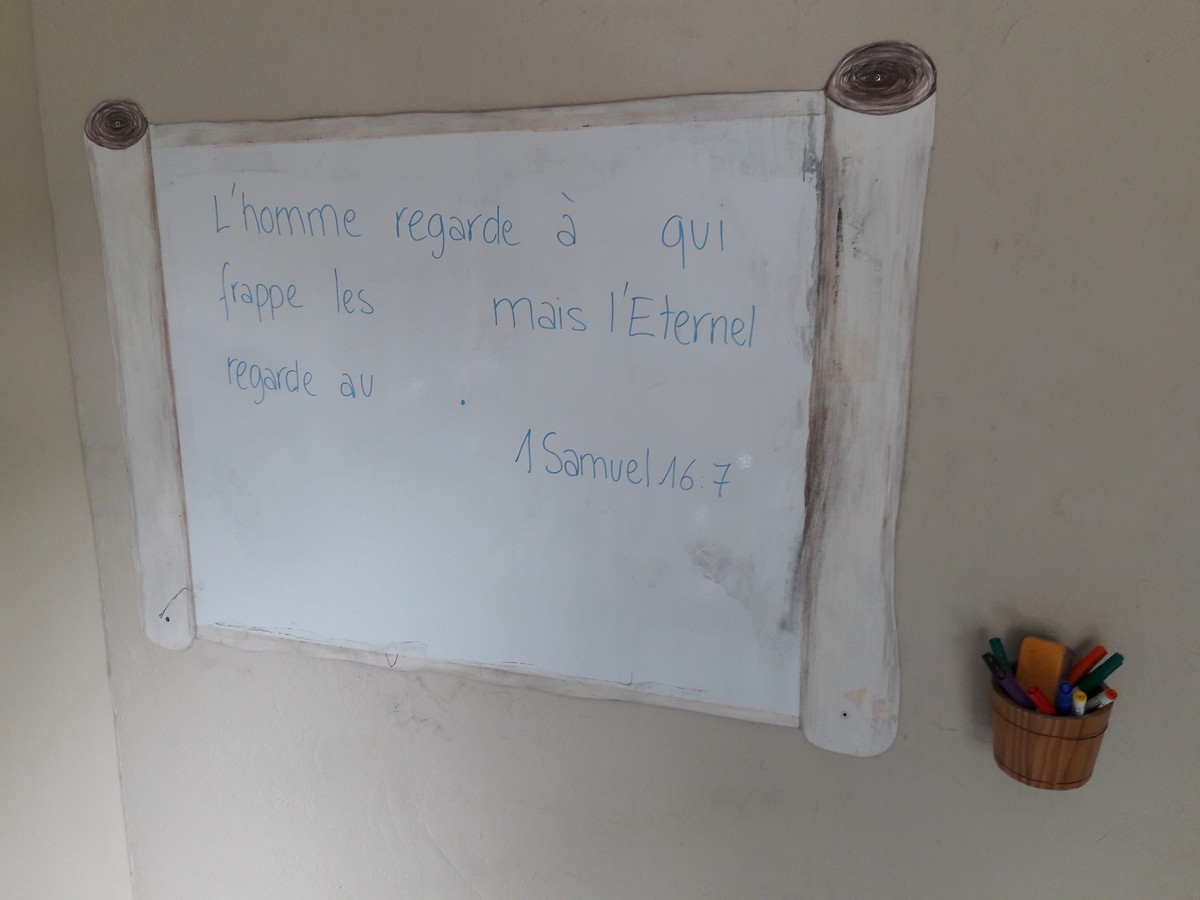 L'homme regarde à qui
frappe les mais l'Eternel
regarde au .
1 Samuel 16:7